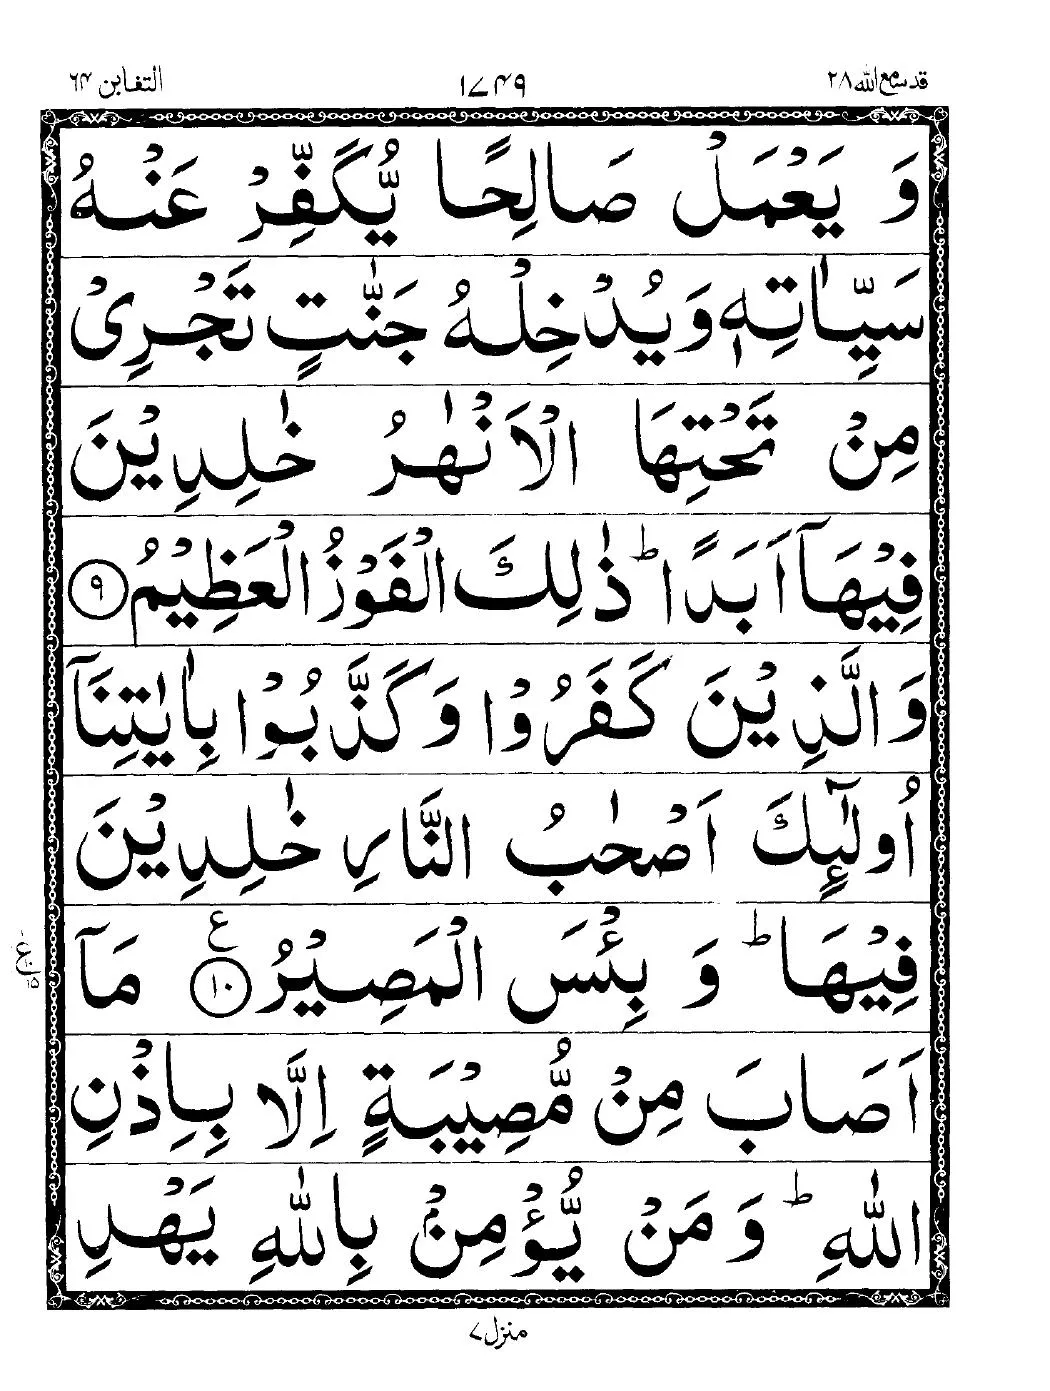 قد سمع الله ٢٨
١٧٤٩
التغابن ٦٤
وَ يَعْمَلْ صَالِحًا يُّكَفِّرْ عَنْهُ
سَيِّاٰتِهٖ وَيُدْخِلْهُ جَنّٰتٍ تَجْرِیْ
مِنْ تَحْتِهَا الْاَنْهٰرُ خٰلِدِیْنَ
فِیْهَاۤ اَبَدًا ؕ ذٰلِكَ الْفَوْزُ الْعَظِیْمُ ۹
وَالَّذِیْنَ كَفَرُوْا وَكَذَّبُوْا بِاٰیٰتِنَاۤ
اُولٰٓئِكَ اَصْحٰبُ النَّارِ خٰلِدِیْنَ
فِیْهَا ؕ وَ بِئْسَ الْمَصِیْرُ ۱۰ ع مَاۤ
اَصَابَ مِنْ مُّصِیْبَةٍ اِلَّا بِاِذْنِ
اللّٰهِ ؕ وَمَنْ یُّؤْمِنْۢ بِاللّٰهِ یَهْدِ
منزل ٧